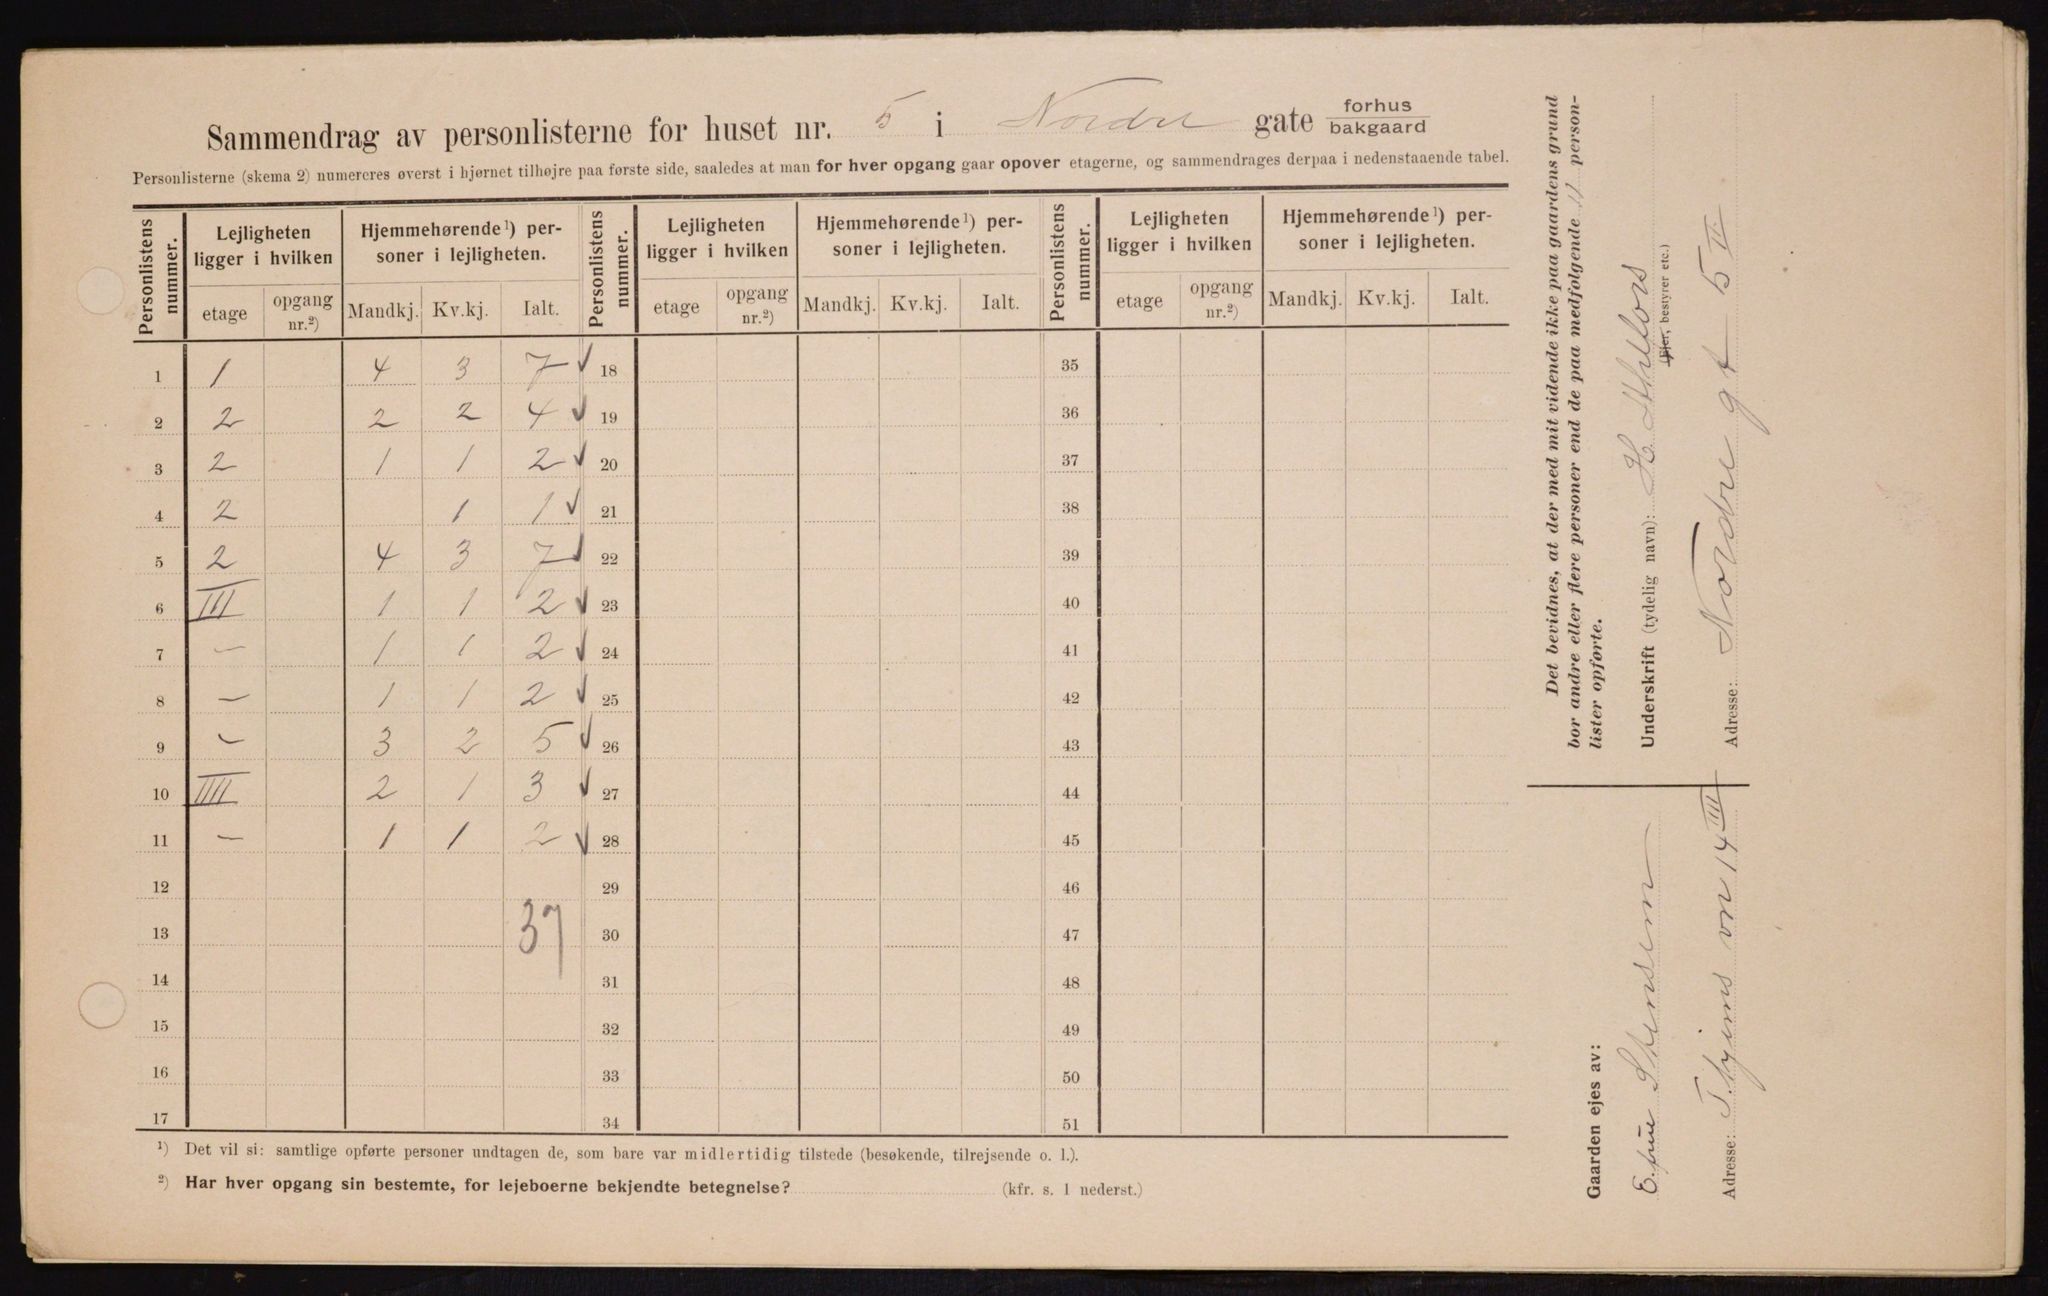 Sammendrag av personlisterne for huset nr. 5 i Nordre gate forhus bakgaard
Personlisterne (skema 2) numereres øverst i hjørnet tilhøjre paa første side, saaledes at man for hver opgang gaar opover etagerne, og sammendrages derpaa i nedenstaaende tabel.
Personlistens nummer. Lejligheten ligger i hvilken Hjemmehørende¹) personer i lejligheten. Personlistens nummer. Lejligheten ligger i hvilken Hjemmehørende¹) personer i lejligheten. Personlistens nummer. Lejligheten ligger i hvilken Hjemmehørende¹) personer i lejligheten.
etage opgang nr.²) Mandkj. Kv.kj. Ialt. etage opgang nr.²) Mandkj. Kv.kj. Ialt. etage opgang nr.²) Mandkj. Kv.kj. Ialt.
1 1 4 3 7 ✓ 18 35
2 2 2 2 4 ✓ 19 36
3 2 1 1 2 ✓ 20 37
4 2 1 1 ✓ 21 38
5 2 4 3 7 ✓ 22 39
6 III 1 1 2 ✓ 23 40
7 – 1 1 2 ✓ 24 41
8 – 1 1 2 ✓ 25 42
9 – 3 2 5 ✓ 26 43
10 IIII 2 1 3 ✓ 27 44
11 – 1 1 2 ✓ 28 45
12 29 46
13 37 30 47
14 31 48
15 32 49
16 33 50
17 34 51
¹) Det vil si: samtlige opførte personer undtagen de, som bare var midlertidig tilstede (besøkende, tilrejsende o. l.).
²) Har hver opgang sin bestemte, for lejeboerne bekjendte betegnelse? (kfr. s. 1 nederst.)
Det bevidnes, at der med mit vidende ikke paa gaardens grund
bor andre eller flere personer end de paa medfølgende 11 person-
lister opførte.
Underskrift (tydelig navn): H.
(Ejer, bestyrer etc.)
Adresse: Nordre gt 5 V.
Gaarden ejes av:
Enkefrue Stensen
Adresse: vn 14 III